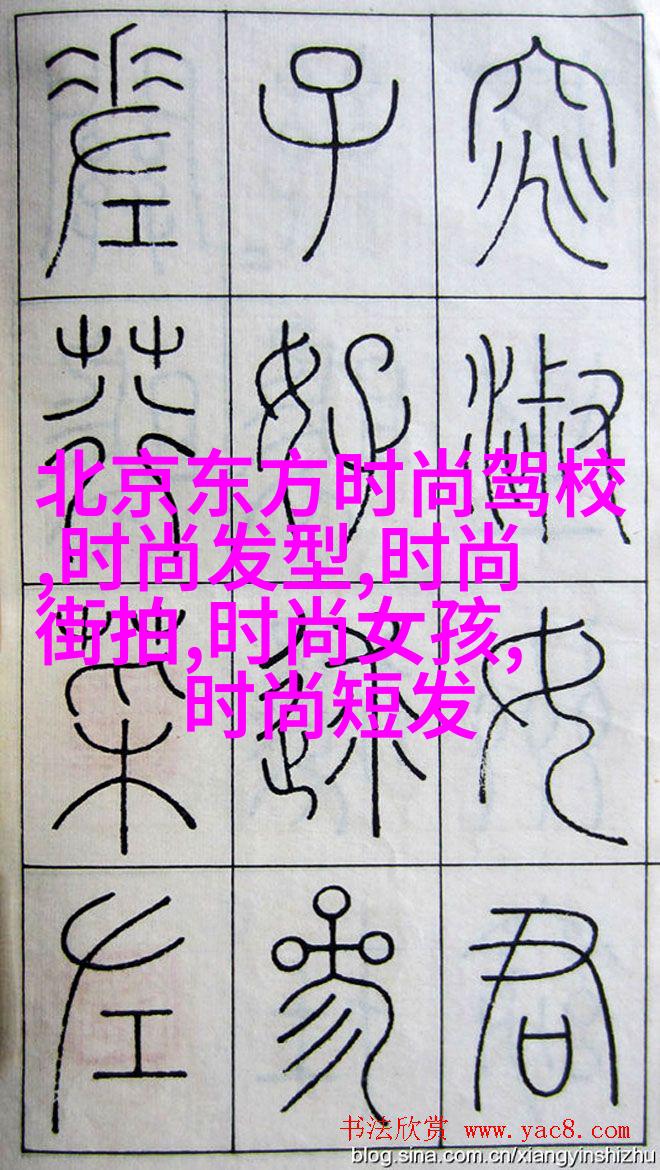 窕淑女君
子好逑参
差荇菜左
北京东方时尚驾校
,时尚发型,时尚
街拍,时尚女孩,
时尚短发
书法欣赏 www.yac8.com
blog.sina.com.cn/xiangyinshizhu